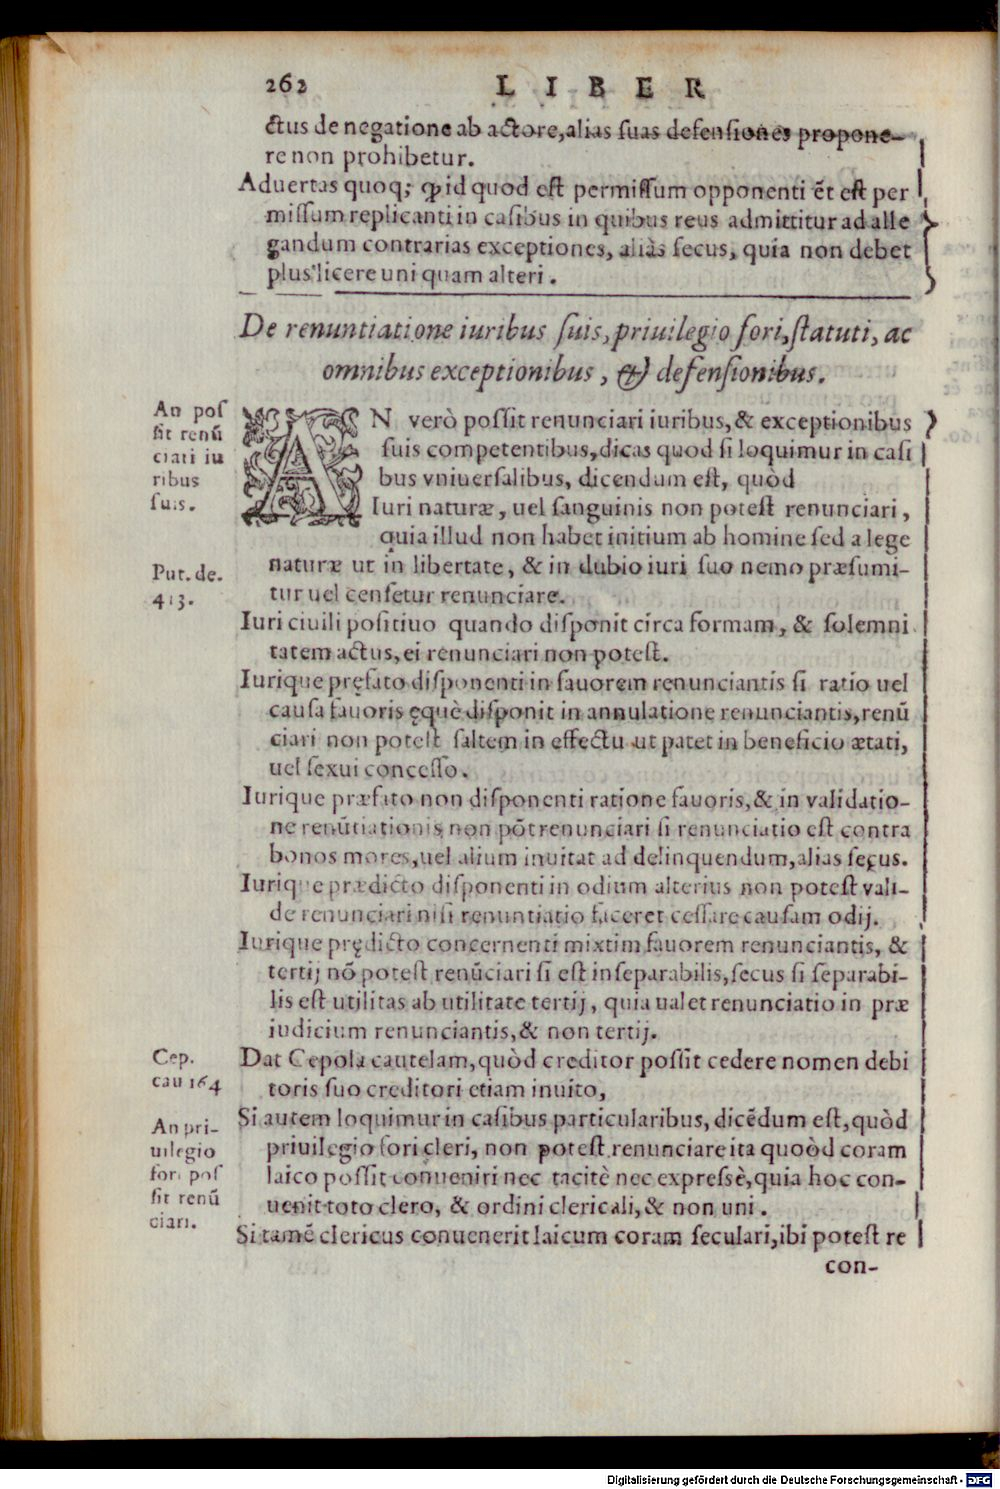 262 LIBER
ctus de negatione ab actore, alias suas defensiones propone-
re non prohibetur.
Aduertas quoq; ꝙ id quod est permissum opponenti ēt est per
missum replicanti in casibus in quibus reus admittitur ad alle
gandum contrarias exceptiones, aliàs secus, quia non debet
plus licere uni quam alteri.
De renuntiatione iuribus suis, priuilegio fori, statuti, ac
omnibus exceptionibus, & defensionibus.
An pos
sit renū
ciati iu
ribus
suis.
AN verò possit renunciari iuribus, & exceptionibus
suis competentibus, dicas quod si loquimur in casi
bus vniuersalibus, dicendum est, quod
Iuri naturæ, uel sanguinis non potest renunciari,
quia illud non habet initium ab homine sed a lege
Put. de.
413.
naturæ ut in libertate, & in dubio iuri suo nemo præsumi-
tur uel censetur renunciare.
Iuri ciuili positiuo quando disponit circa formam, & solemni
tatem actus, ei renunciari non potest.
Iurique pręfato disponenti in fauorem renunciantis si ratio uel
causa fauoris ęquè disponit in annulatione renunciantis, renū
ciari non potest saltem in effectu ut patet in beneficio ætati,
uel sexui concesso.
Iurique præfato non disponenti ratione fauoris, & in validatio-
ne renūtiationis non pōt renunciari si renunciatio est contra
bonos mores, uel alium inuitat ad delinquendum, alias secus.
Iurique prædicto disponenti in odium alterius non potest vali-
de renunciari nisi renuntiatio faceret cessare causam odij.
Iurique prędicto concernenti mixtim fauorem renunciantis, &
tertij nō potest renūciari si est inseparabilis, secus si separabi-
lis est utilitas ab utilitate tertij, quia ualet renunciatio in præ
iudicium renunciantis, & non tertij.
Cep.
cau 164
Dat Cepola cautelam, quòd creditor possit cedere nomen debi
toris suo creditori etiam inuito,
An pri-
uilegio
fori pos
sit renū
ciari.
Si autem loquimur in casibus particularibus, dicēdum est, quòd
priuilegio fori cleri, non potest renunciare ita quoòd coram
laico possit conueniri nec tacitè nec expressè, quia hoc con-
uenit toto clero, & ordini clericali, & non uni.
Si tamē clericus conuenerit laicum coram seculari, ibi potest re
con-
Digitalisierung gefördert durch die Deutsche Forschungsgemeinschaft - DFG